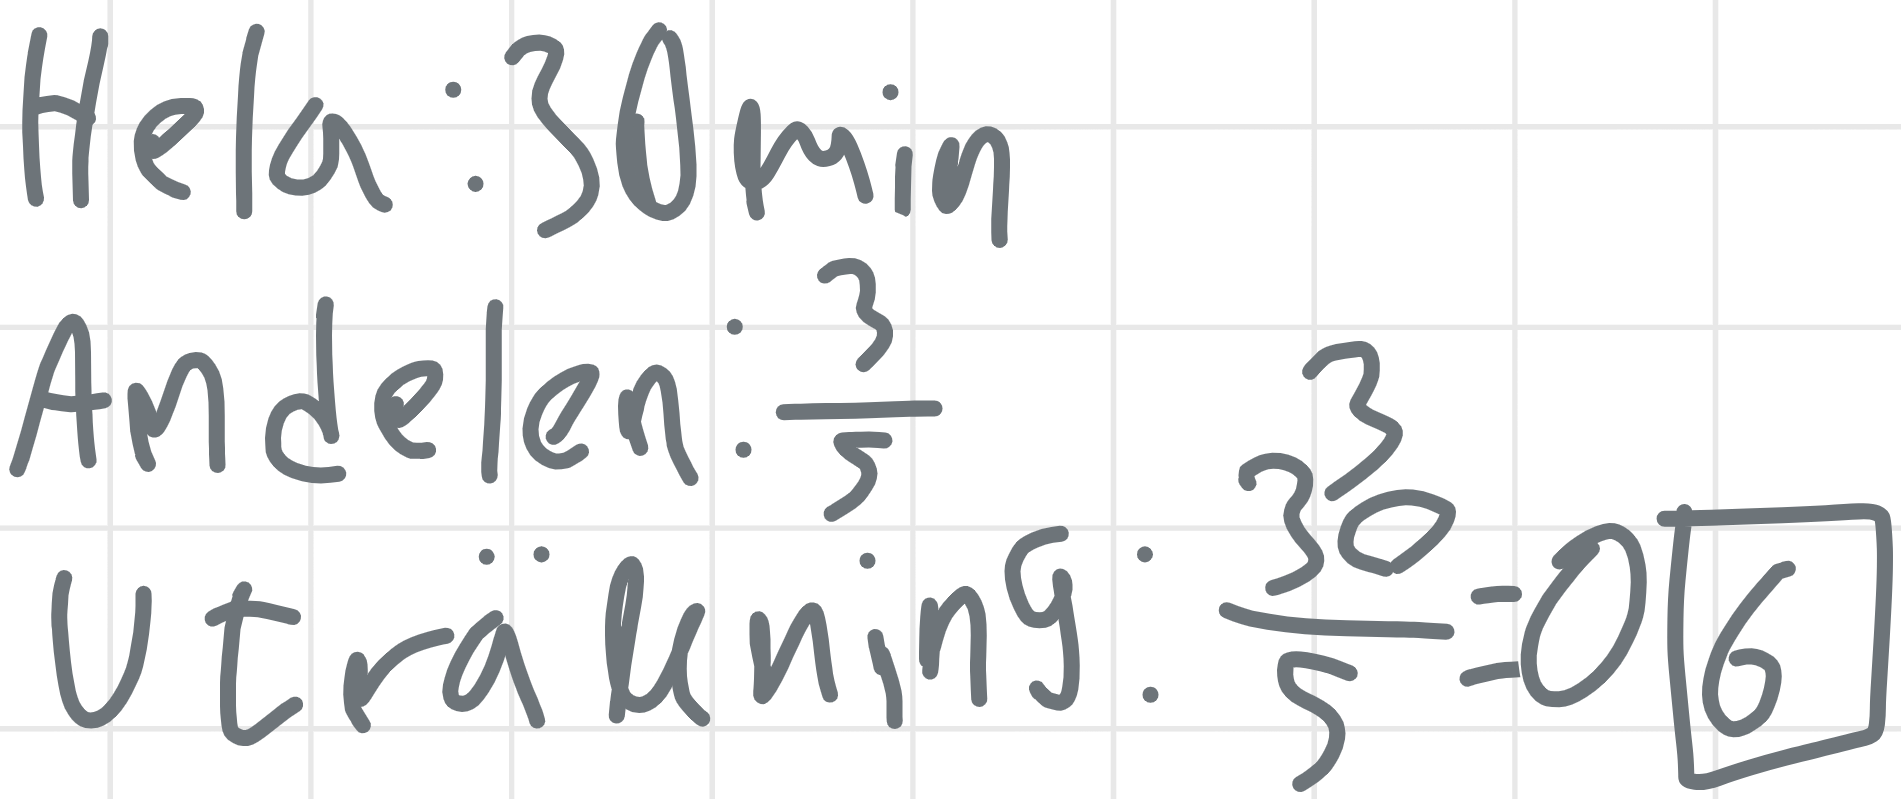 Hela: 30 min
Andelen: 3/5
Uträkning: 30/5 = 06